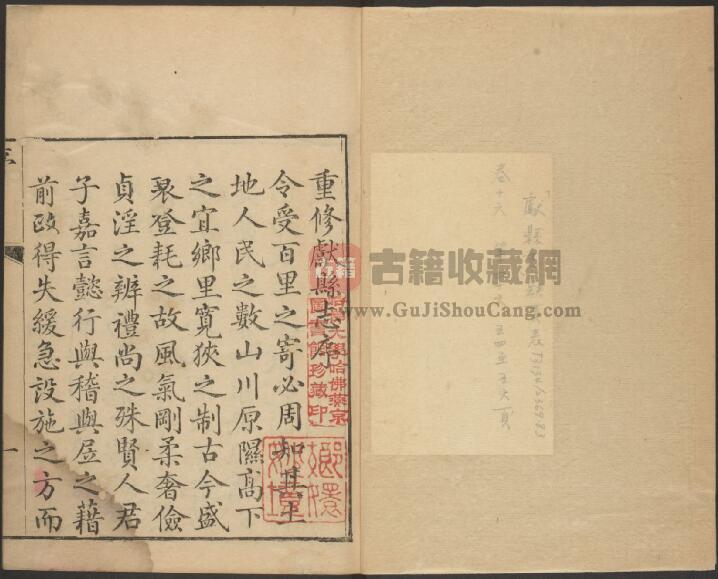 重修獻縣志序
令受百里之寄必周知其土
地人民之數山川原隰高下
之宜鄉里寬狹之制古今盛
衰登耗之故風氣剛柔奢儉
貞淫之辨禮尚之殊賢人君
子嘉言懿行與稽與居之藉
前政得失緩急設施之方而
一
哈佛燕京
圖書館珍藏印
獻縣
卷十六
五四至五六頁
古籍收藏網
www.GuJiShouCang.com